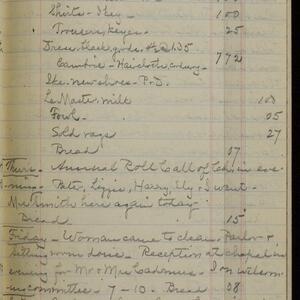 Shirts - Ikey - 100
Trousers, Keyes - 25
Dress, black gods, 4 @ 1.35
Cambric - Haircloth, cording - 772
Ike. new shoes - P.D.
Le Master, milk 100
Fowl - 05
Sold rags 27
Bread 07
Thurs - Annual Roll Call of Ch. in eve-
ning - Pater, Lizzie, Harry, Ely & I went -
Mrs Smith here again today
Bread 15
Friday - Woman came to clean, Parlor &
sitting room done. Reception at chapel in
evening for Mr & Mrs - I on
committee - 7 - 10 - Bread 08